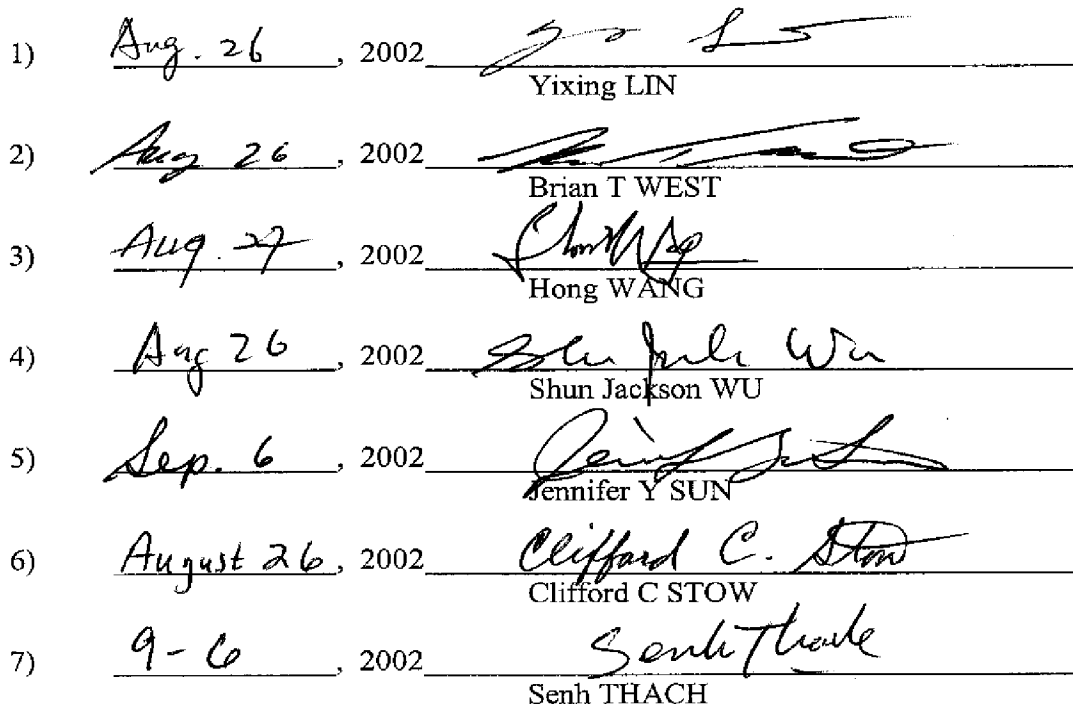 1) Aug. 26, 2002
Yixing LIN
2) Aug 26, 2002
Brian T WEST
3) Aug. 27, 2002
Hong WANG
4) Aug 26, 2002 Shun Jack Wu
Shun Jackson WU
5) Sep. 6, 2002
Jennifer Y SUN
6) August 26, 2002 Clifford C. Stow
Clifford C STOW
7) 9-6, 2002 Senh Thach
Senh THACH